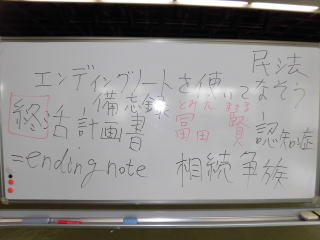 民法
エンディングノートを使いてなそう
備忘録
終活計画書
とみた まさる
富田 賢
認知症
=ending note 相続争族